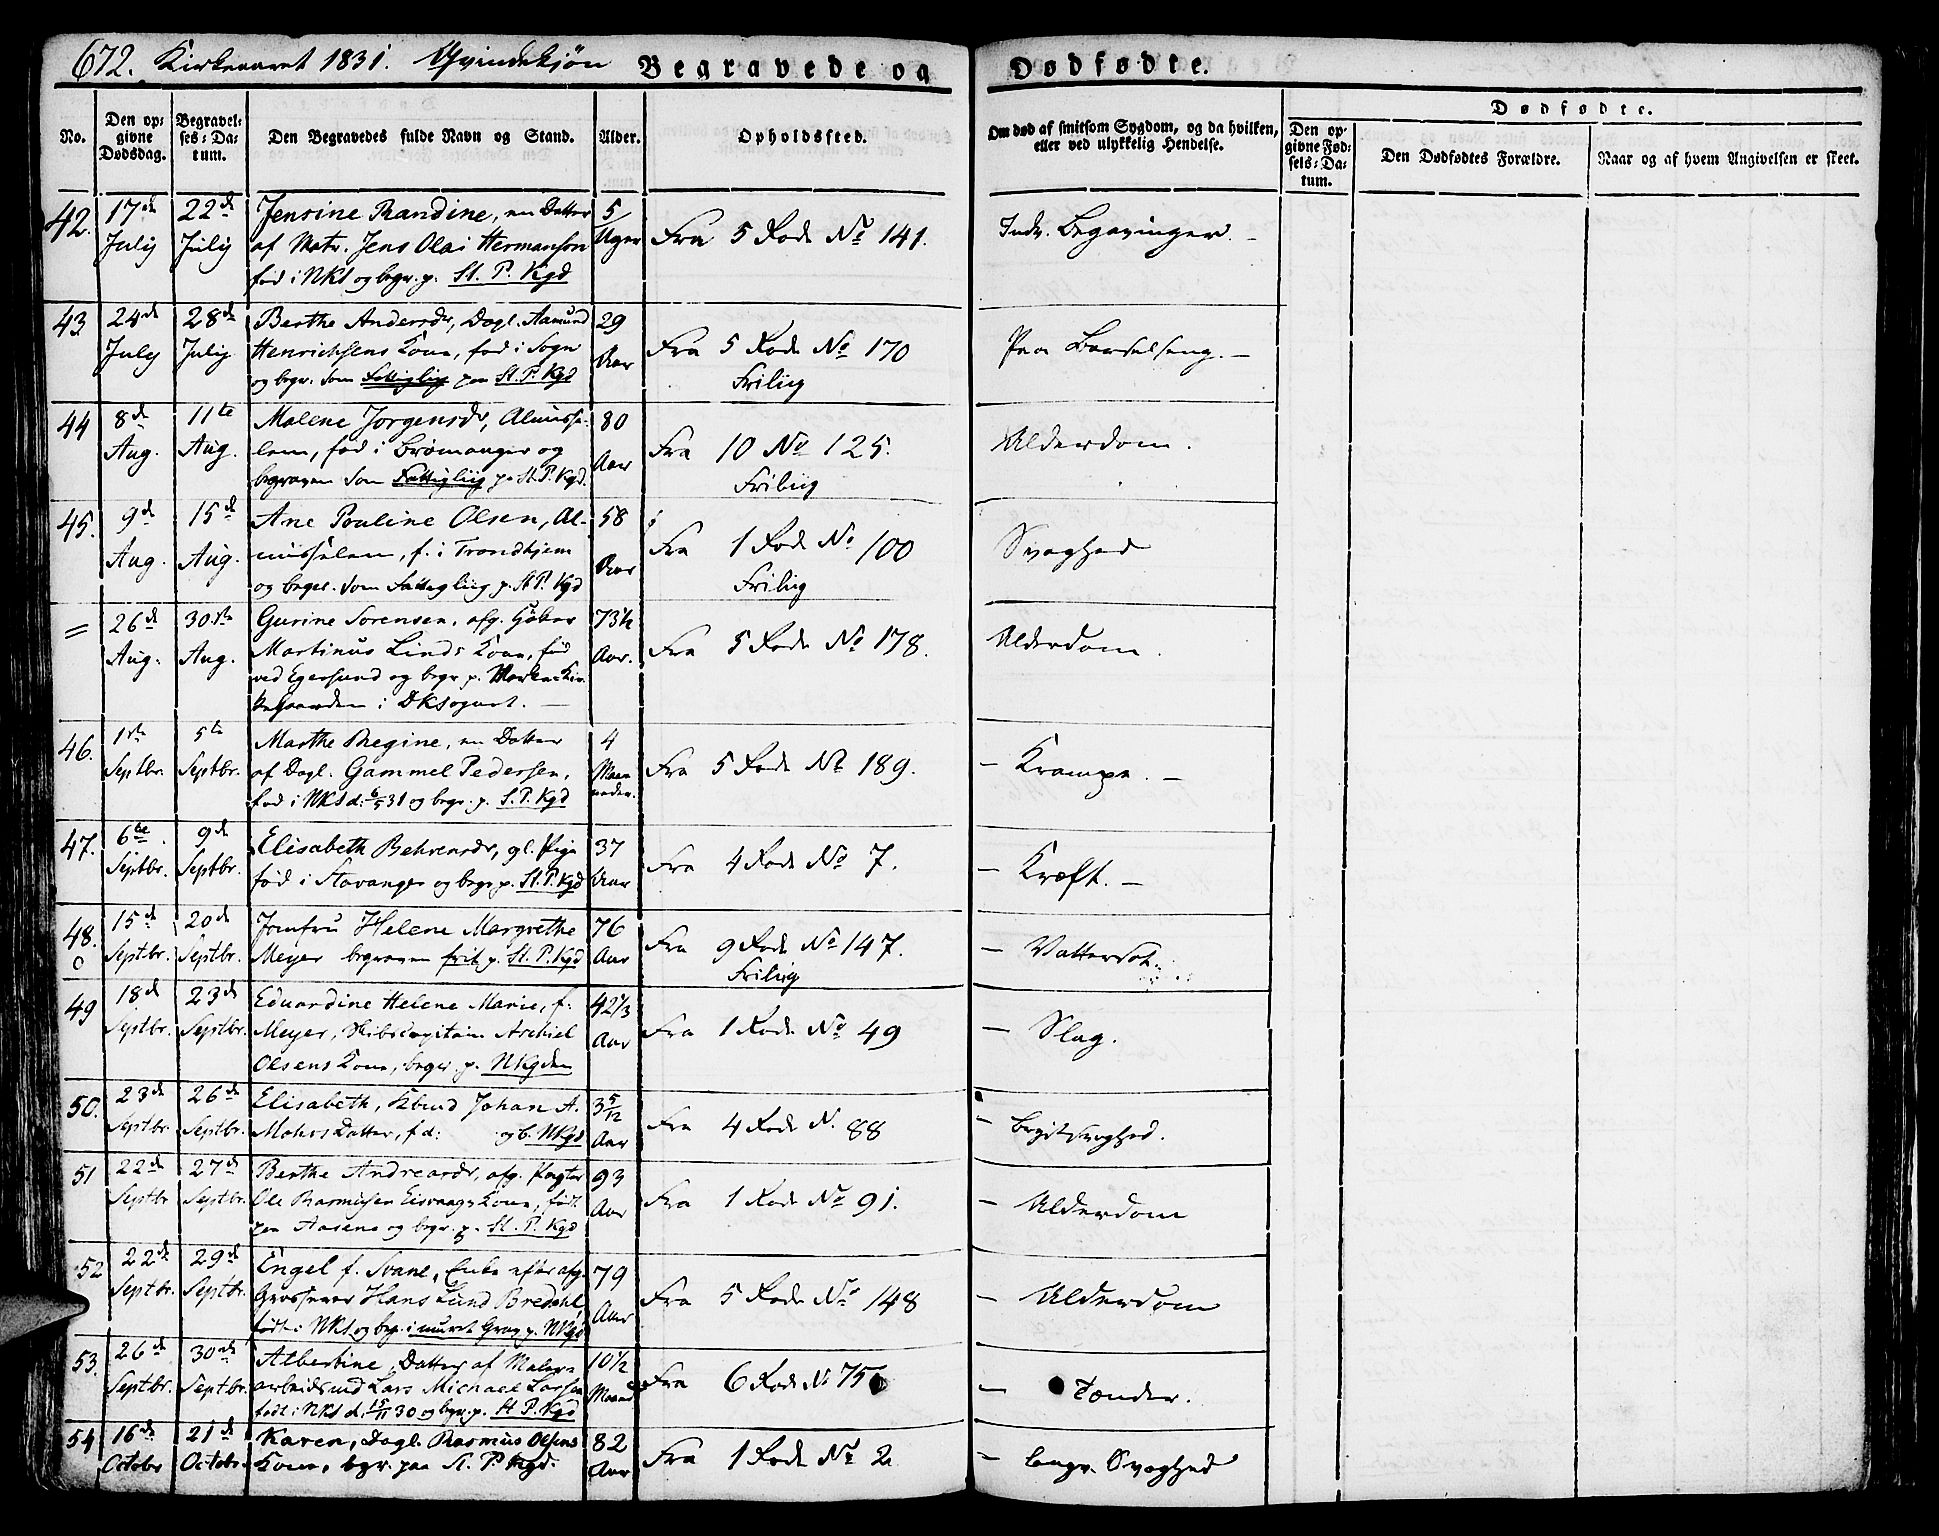 672. Kirkeaaret 1831. Qvindekjøn Begravede og Dødfødte.
No.
Den opgivne Dødsdag.
Begravelses-Datum.
Den Begravedes fulde Navn og Stand.
Alder.
Opholdssted.
Om død af smitsom Sygdom, og da hvilken, eller ved ulykkelig Hendelse.
Dødfødte.
Den opgivne Fødsels-Datum.
Den Dødfødtes Forældre.
Naar og af hvem Angivelsen er skeet.
42. 17de July 22de July
Jensine Randine, en Datter
af Matr. Jens Olai Hermansen
fød i NKS og begr. p. St. P. Kgd
5 Uger
Fra 5 Rode No 141.
Indv. –
43 24de July 28de July
Berthe Andersdr, Dagl. Aamund
Henrichsens Kone, fød i Sogn
og begr. som Fattiglig paa St. P. Kgd
29 Aar
Fra 5 Rode No 170
Friliig
Paa Barselseng. –
44 8de Aug. 11te Aug.
Malene Jørgensdr, Almisse-
lem, fød i Bremanger og
begraven som Fattigliig p. St. P. Kgd.
80 Aar
Fra 10 No 125.
Friliig
Alderdom.
45. 9de Aug. 15de Aug.
Ane Pouline Olsen, Al-
misselem, f. i Trondhjem
og begr. som Fattigliig p. St P. Kgd
58 Aar
Fra 1 Rode No 100
Friliig
Svaghed
= 26de Aug. 30te Aug.
Gurine Sorensen, afg.
Martinus Linds Kone, fød
ved Egersund og begr. p. Marken Kir-
kegaarden i DKSognet. –
73½ Aar.
Fra 5 Rode No 178.
Alderdom.
46. 1ste Septbr. 5te Septbr.
Marthe Regine, en Datter
af Dagl. Gammel Pedersen,
fød i NKS d. 6/5 31 og begr. p. S. P. Kgd
4 Maaneder.
Fra 5 Rode No 189.
– Krampe. –
47. 6te Septbr. 9de Septbr.
Elisabeth Behrensdr, gl. Pige
fød i Stavanger og begr p. St. P. Kgd
37 Aar
Fra 4 Rode No 7.
– Kræft. –
48. 15de Septbr. 20de Septbr.
Jomfru Helene Margrethe
Meyer begraven frit p. St. P. Kgd
76 Aar
Fra 9 Rode No 147.
Friliig
– Vattersot.
49 18de Septbr. 23de Septbr.
Eduardine Helene Marie, f.
Meyer, Skibscapitain
Olsens Kone, begr. p. NKgden
42⅓ Aar
Fra 1 Rode No 49
– Slag.
50. 23de Septbr. 26de Septbr.
Elisabeth, Kbmd Johan A.
Mohrs Datter, f d: og b. NKgd
3 5/12 Aar
Fra 4 Rode N. 88
– Brystsvaghed.
51 22de Septbr 27de Septbr.
Berthe Andreasdr, afg.
Ole Rasmusen Kone, født
paa Aasene og begr. p. St. P. Kgd
93 Aar
Fra 1 Rode No 91.
– Alderdom
52 22de Septbr. 29de Septbr.
Engel f. Svane, Enke efter afg.
Hans Lund Bredahl,
født i NKS og beg. i muret Grav p. NKgd
79 Aar
Fra 5 Rode No 148
– Alderdom
53. 26de Septbr. 30de Septbr.
Albertine, Datter af Maler-
arbeidsmd Lars Michael Larsen
født i NKS d. 15/11 30 og begr. p. St P. Kgd
10½ Maaned
Fra 6 Rode No 75
– Tænder.
54 16de Octobr 21de Octobr.
Karen, Dagl. Rasmus Olsens
Kone, begr. paa St. P. Kgd.
82 Aar
Fra 1 Rode No 2
– Svaghed